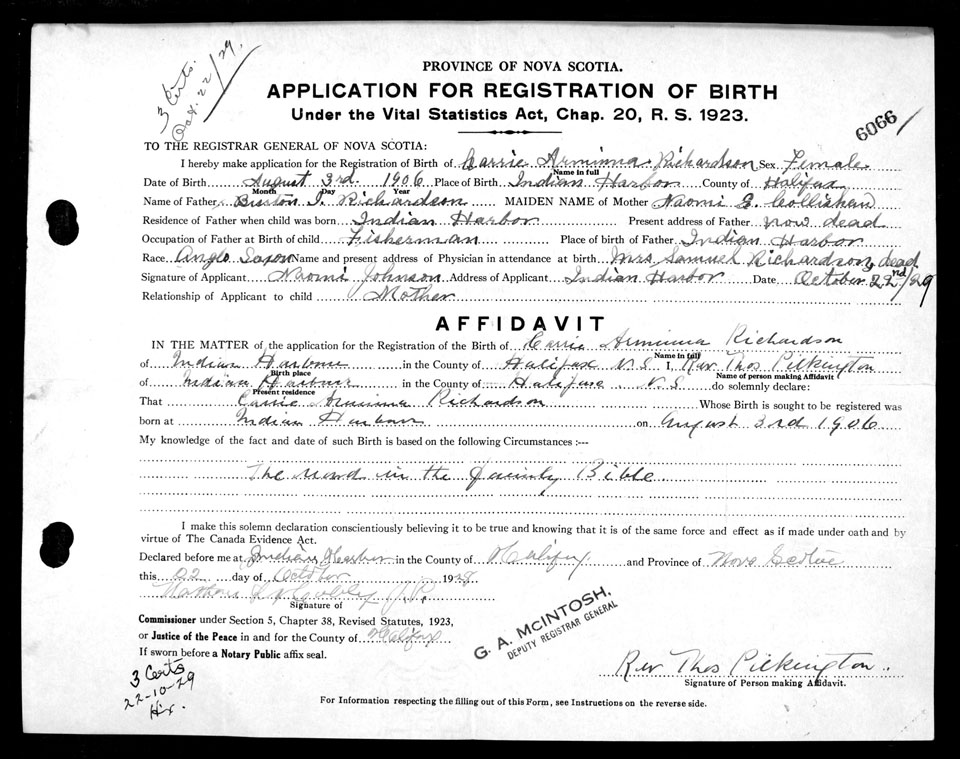 3 Certs.
Oct. 22/29.
PROVINCE OF NOVA SCOTIA.
APPLICATION FOR REGISTRATION OF BIRTH
Under the Vital Statistics Act, Chap. 20, R. S. 1923.
6066
TO THE REGISTRAR GENERAL OF NOVA SCOTIA:
I hereby make application for the Registration of Birth of Carrie Arminna Richardson Sex Female
Name in full
Date of Birth August 3rd. 1906 Place of Birth Indian Harbor County of Halifax
Month Day Year
Name of Father Burton I. Richardson MAIDEN NAME of Mother Naomi E.
Residence of Father when child was born Indian Harbor Present address of Father now dead
Occupation of Father at Birth of child Fisherman Place of birth of Father Indian Harbor
Race Anglo Saxon Name and present address of Physician in attendance at birth Mrs Samuel Richardson, dead
Signature of Applicant Naomi Johnson Address of Applicant Indian Harbor Date October 22nd/29
Relationship of Applicant to child Mother
AFFIDAVIT
IN THE MATTER of the application for the Registration of the Birth of Carrie Arminna Richardson
Name in full
of Indian Harbour in the County of Halifax N.S. I, Rev. Thos Pilkington
Birth place Name of person making Affidavit
of Indian Harbour in the County of Halifax N.S. do solemnly declare:
Present residence
That Carrie Arminna Richardson Whose Birth is sought to be registered was
born at Indian Harbour on August 3rd 1906
My knowledge of the fact and date of such Birth is based on the following Circumstances :—
The record in the family Bible
I make this solemn declaration conscientiously believing it to be true and knowing that it is of the same force and effect as if made under oath and by
virtue of The Canada Evidence Act.
Declared before me at Indian Harbor in the County of Halifax and Province of Nova Scotia
this 22 day of October 192
J.P.
Signature of
Commissioner under Section 5, Chapter 38, Revised Statutes, 1923,
or Justice of the Peace in and for the County of Halifax
If sworn before a Notary Public affix seal.
G. A. McINTOSH,
DEPUTY REGISTRAR GENERAL
3 Certs
22-10-29
Rev Thos Pilkington.
Signature of Person making Affidavit.
For Information respecting the filling out of this Form, see Instructions on the reverse side.